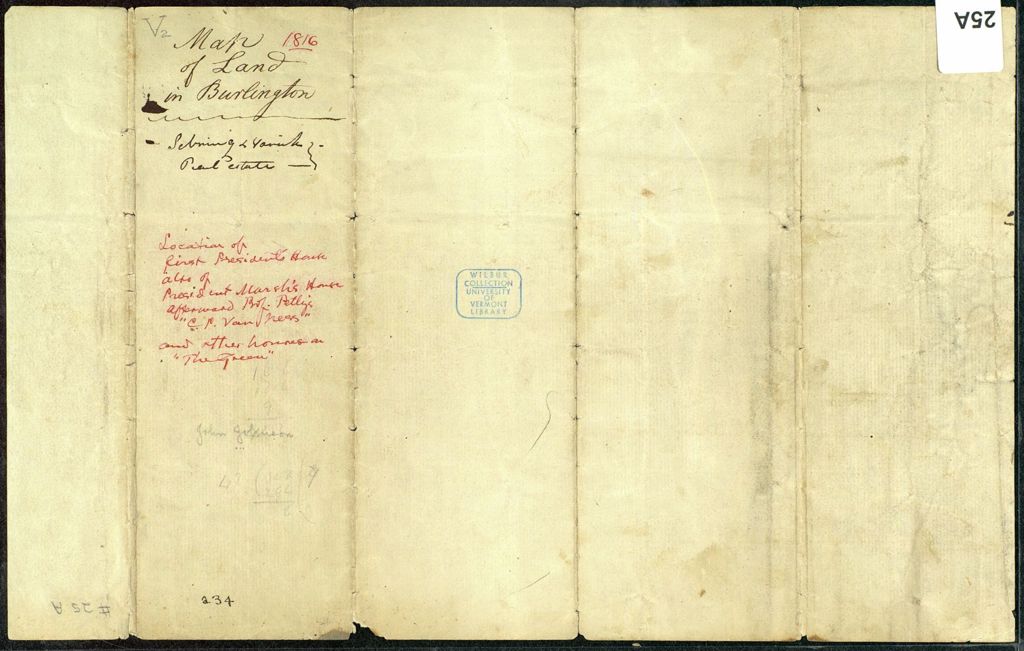 25A
V2
Map 1816
of Land
in Burlington
Real estate
Location of
first President's House
also of
President Marsh's House
afterward Prof. Petty's
"C. P. Van Ness"
and other houses on
"The Green"
John Johnson
234
# 25 A
WILBUR
COLLECTION
UNIVERSITY
OF
VERMONT
LIBRARY